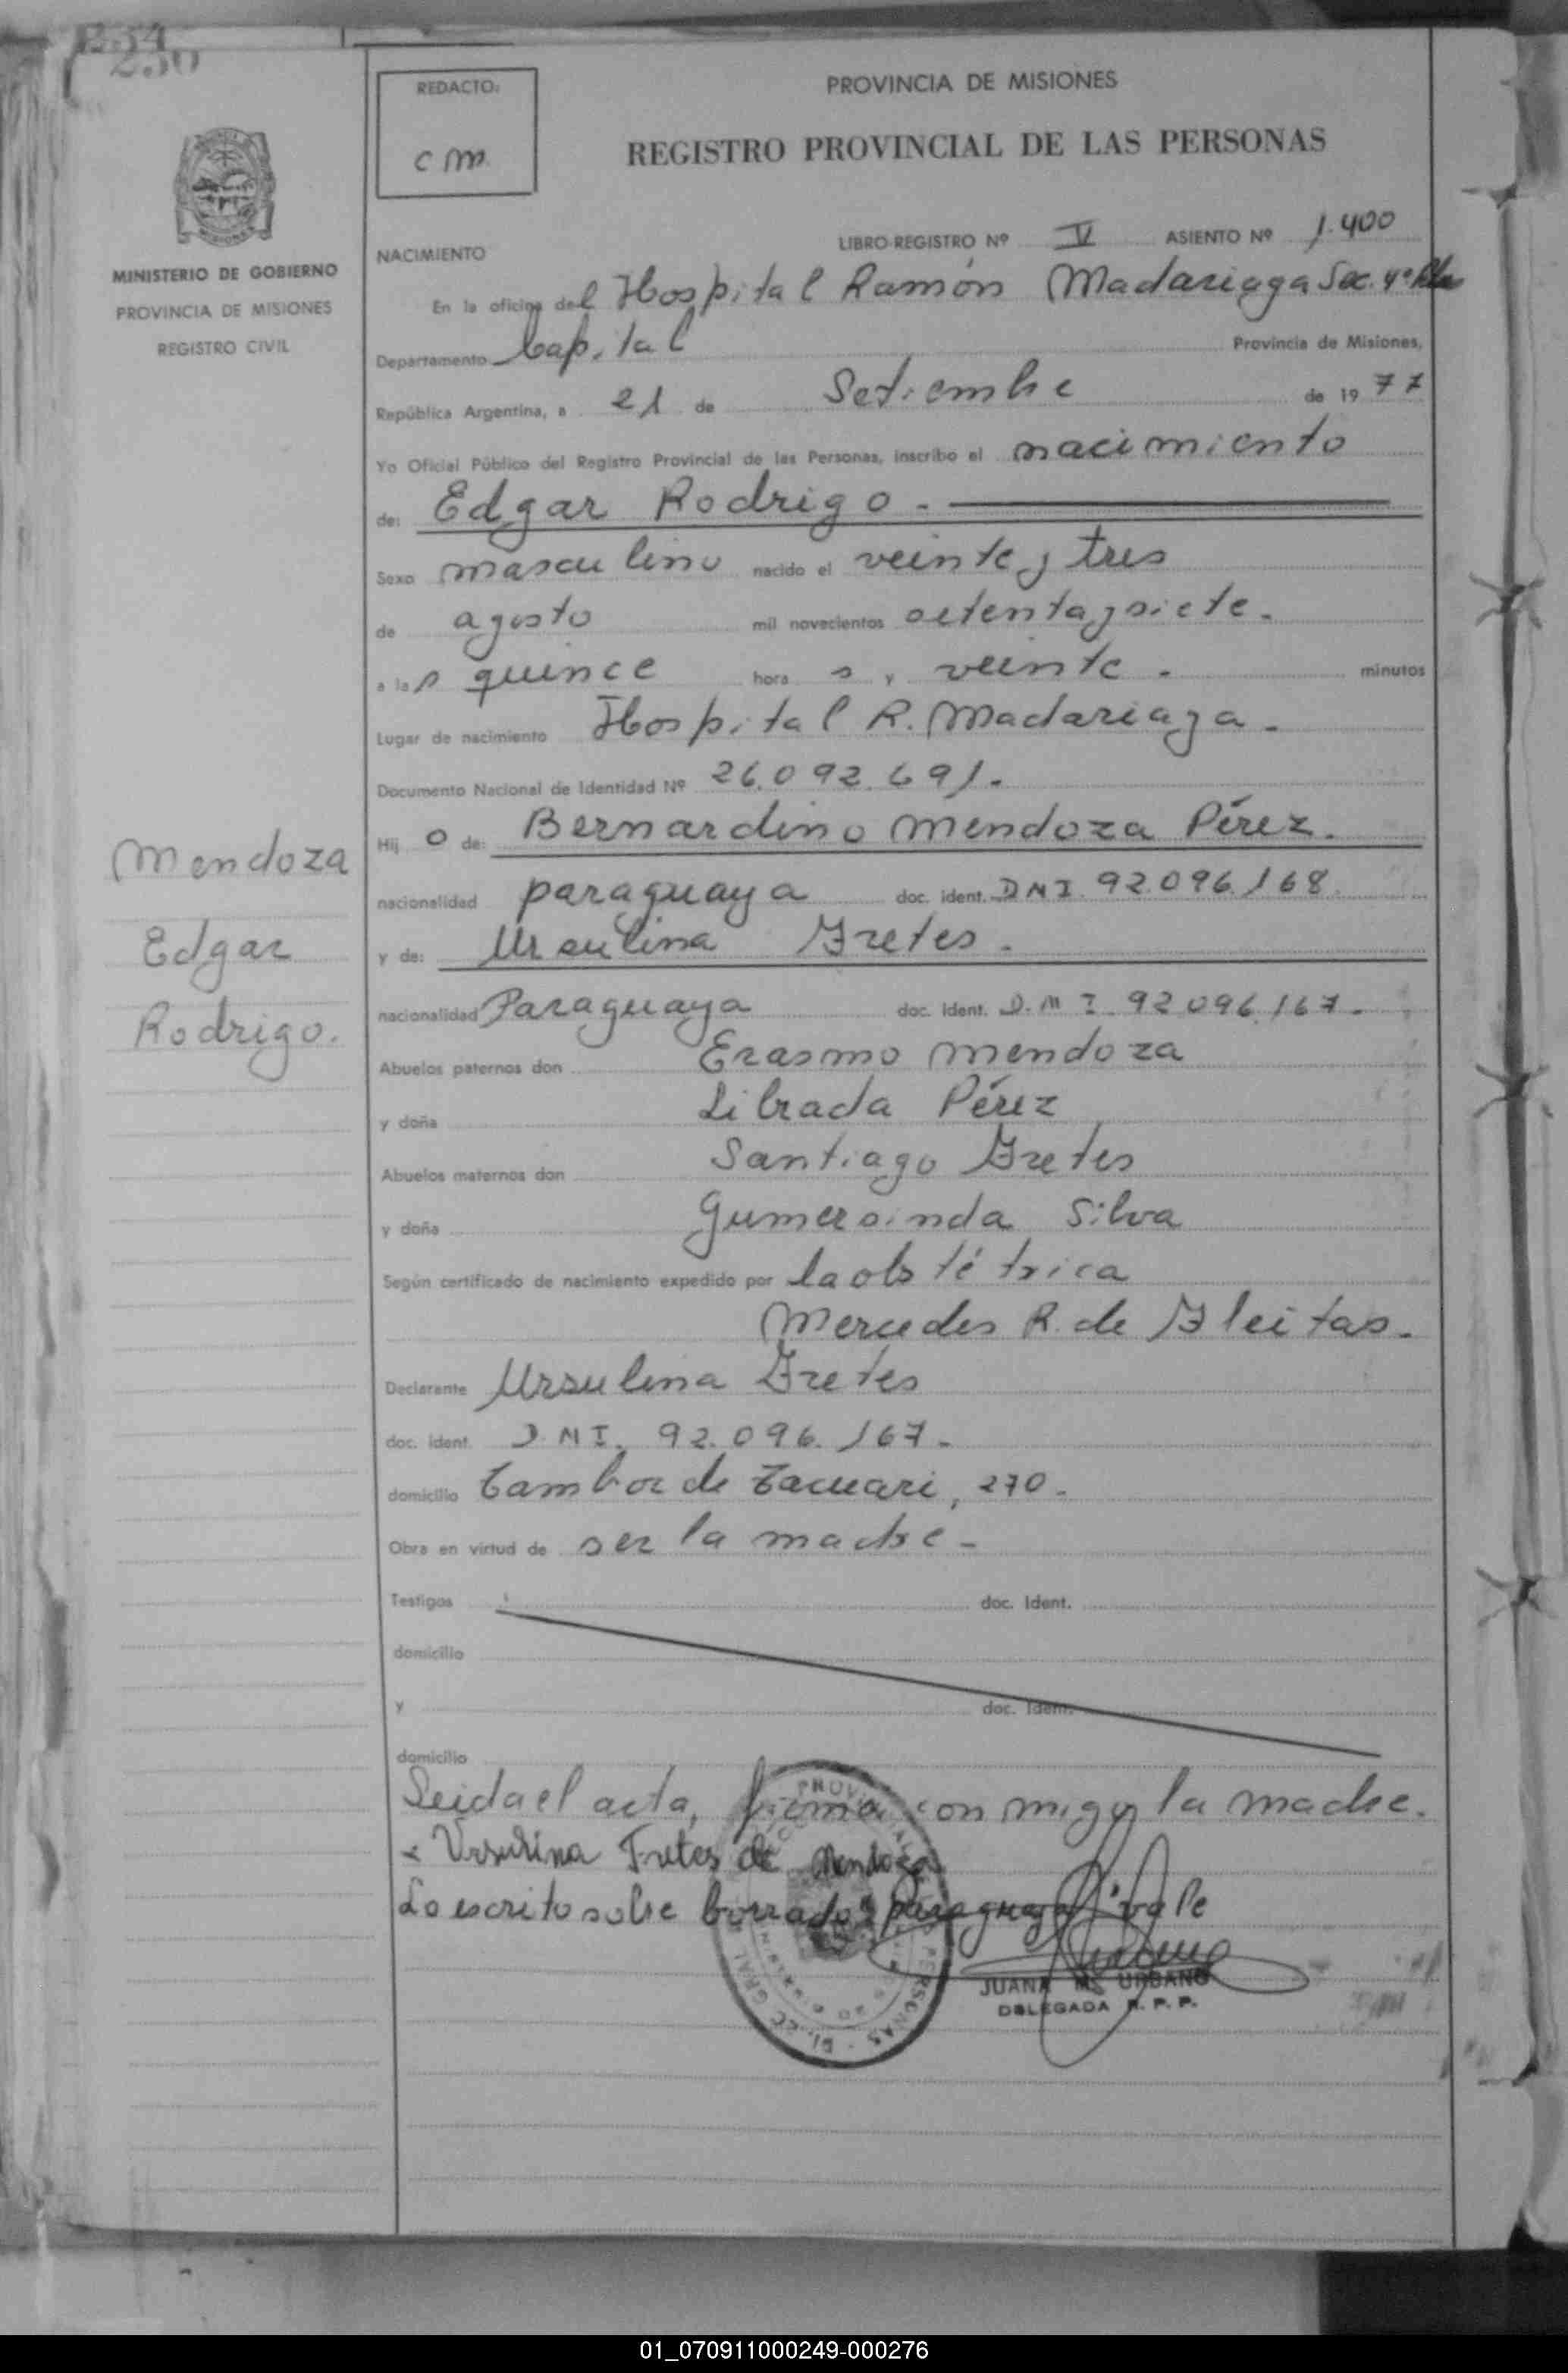 250
REDACTO:
c m.
PROVINCIA DE MISIONES
REGISTRO PROVINCIAL DE LAS PERSONAS
MINISTERIO DE GOBIERNO
PROVINCIA DE MISIONES
REGISTRO CIVIL
NACIMIENTO
LIBRO-REGISTRO Nº V ASIENTO Nº 1.400
En la oficina del Hospital Ramón Madariaga Sec. 4º
Departamento Capital Provincia de Misiones,
República Argentina, a 21 de Setiembre de 1977
Yo Oficial Público del Registro Provincial de las Personas, inscribo el nacimiento
de: Edgar Rodrigo.
Sexo masculino nacido el veinte y tres
de agosto mil novecientos setenta y siete.
a las quince hora s y veinte. minutos
Lugar de nacimiento Hospital R. Madariaga.
Documento Nacional de Identidad Nº 26.092.691.
Hij o de: Bernardino Mendoza Pérez.
nacionalidad paraguaya doc. ident. DNI. 92.096.168.
y de: Ursulina Fretes.
nacionalidad Paraguaya doc. ident. D.N I. 92.096.167.
Abuelos paternos don Erasmo Mendoza
y doña Librada Pérez
Abuelos maternos don Santiago Fretes
y doña Gumersinda Silva
Según certificado de nacimiento expedido por la obstétrica
Mercedes R. de Fleitas.
Declarante Ursulina Fretes
doc. ident. DNI. 92.096.167.
domicilio Tambor de Tacuari, 270.
Obra en virtud de ser la madre.
Testigos doc. Ident.
domicilio
y doc. Ident.
domicilio
Leida el acta, firma con migo la madre.
x Ursulina Fretes de Mendoza
Lo escrito sobre borrado: "paraguaya" vale
JUANA M. URBANO
DELEGADA R. P. P.
Mendoza
Edgar
Rodrigo.
01_070911000249-000276